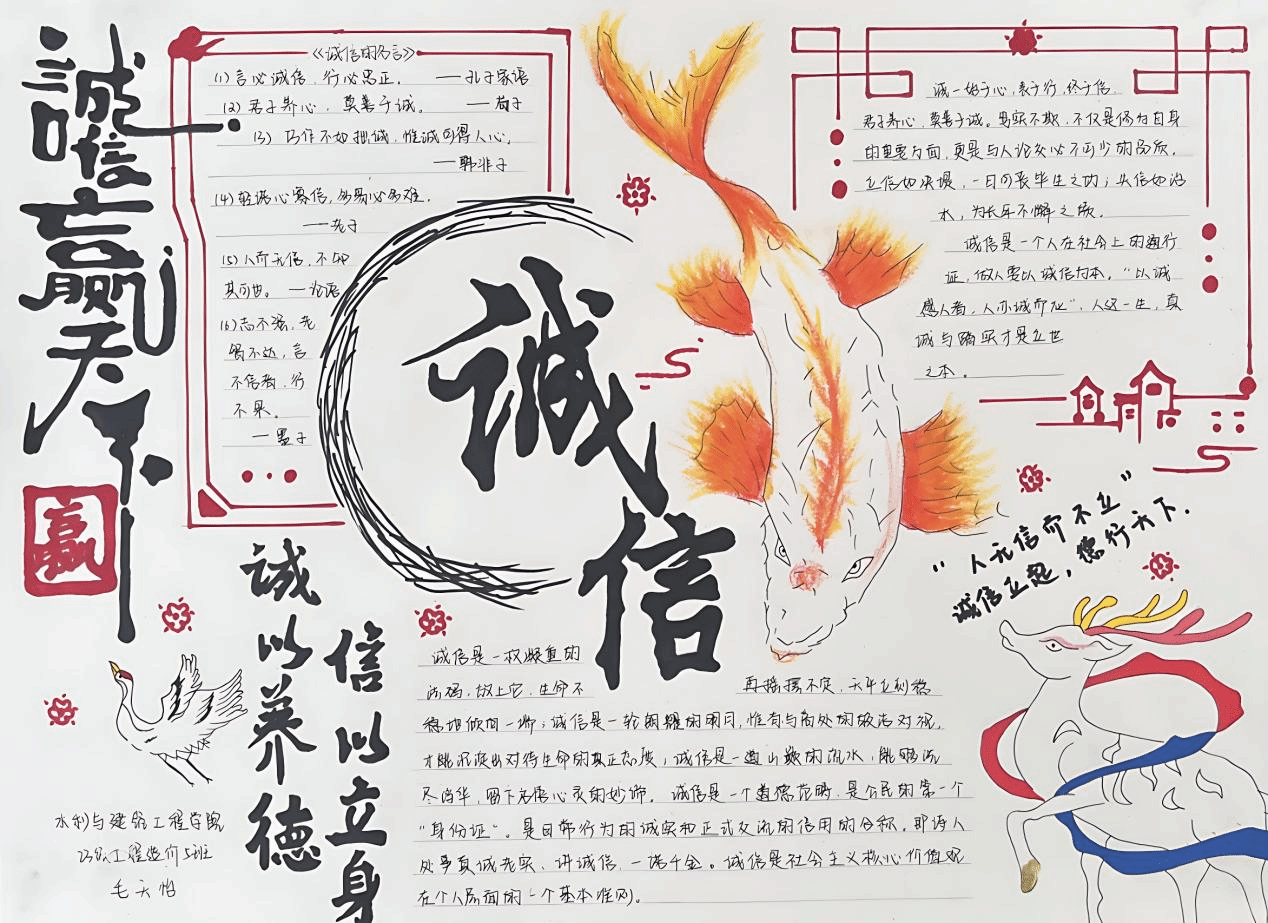 誠信赢天下
赢
《诚信的名言》
(1) 言必诚信，行必忠正。 ——孔子家语
(2) 君子养心，莫善于诚。 ——荀子
(3) 巧作不如拙诚，惟诚可得人心。
——韩非子
(4) 轻诺必寡信，多易必多难。
——老子
(5) 人而无信，不知
其可也。 ——论语
(6) 志不强，者
智不达，言
不信者，行
不果。
——墨子
诚
信
诚一始于心，表于行，终于信。
君子养心，莫善于诚。
不仅是修为自身
的重要方面，更是与人论交必不可少的品质。
立信如决堤，一日可丧毕生之功；失信如治
水，为长年不懈之绩。
诚信是一个人在社会上的通行
证，做人要以诚信为本。“以诚
感人者，人亦诚而应”，人这一生，真
诚与踏实才是立世
之本。
“人无信而不立”
诚信立起，德行天下.
诚以养德
信以立身
诚信是一枚凝重的
砝码，放上它，生命不
再摇摆不定，天平立刻稳
稳地倾向一端；诚信是一轮朗耀的明月，惟有与高处的皎洁对视，
才能沉淀出对待生命的真正态度；诚信是一道山巅的流水，能够洗
尽浮华，
留下
心灵的妙谛。诚信是一个道德范畴，是公民的第一个
“身份证”。是日常行为的诚实和正式交流的信用的合称。即待人
处事真诚老实、讲诚信，一诺千金。诚信是社会主义核心价值观
在个人层面的一个基本准则。
水利与建筑工程学院
23级工程造价5班
毛天怡